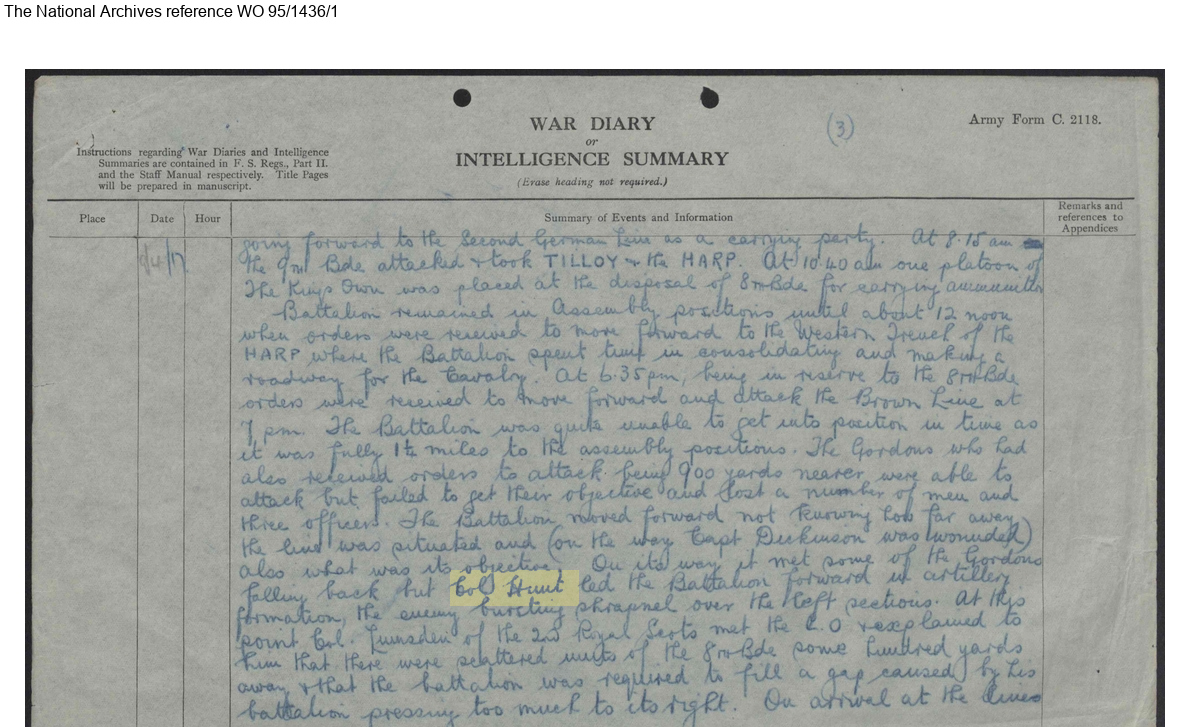 The National Archives reference WO 95/1436/1
(3)
Army Form C. 2118.
WAR DIARY
or
INTELLIGENCE SUMMARY
(Erase heading not required.)
Instructions regarding War Diaries and Intelligence
Summaries are contained in F. S. Regs., Part II.
and the Staff Manual respectively. Title Pages
will be prepared in manuscript.
Place Date Hour Summary of Events and Information Remarks and
references to
Appendices
9/4/17 going forward to the Second German Line as a carrying party. At 8.15 am
the 9th Bde attacked & took TILLOY & the HARP. At 10.40 am one platoon of
The Kings Own was placed at the disposal of 8th Bde for carrying ammunition
Battalion remained in Assembly positions until about 12 noon
when orders were received to move forward to the Western Trench of the
HARP where the Battalion spent time in consolidating and making a
roadway for the Cavalry. At 6.35 pm, being in reserve to the 8th Bde
orders were received to move forward and attack the Brown Line at
7 pm. The Battalion was quite unable to get into position in time as
it was fully 1½ miles to the assembly positions. The Gordons who had
also received orders to attack being 900 yards nearer were able to
attack but failed to get their objective and lost a number of men and
three officers. The Battalion moved forward not knowing how far away
the line was situated and (on the way Capt Dickinson was wounded)
also what was its objective. On its way it met some of the Gordons
falling back but Col Hunt led the Battalion forward in artillery
formation, the enemy bursting shrapnel over the left sections. At this
point Col. Lumsden of the 2nd Royal Scots met the C.O & explained to
him that there were scattered units of the 8th Bde some hundred yards
away & that the battalion was required to fill a gap caused by his
battalion pressing too much to its right. On arrival at the lines